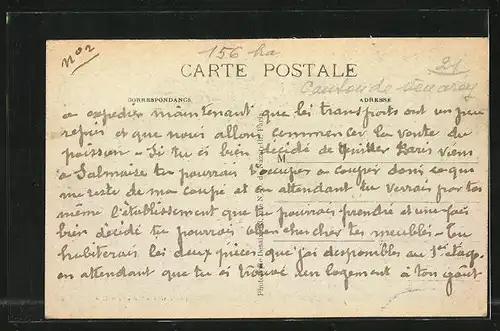 No 2
156 ha
21
CARTE POSTALE
Canton de Venarey
CORRESPONDANCE
ADRESSE
a expedier maintenant que les transports ont un peu
repris et que nous allons commencer la vente du
poisson - Si tu es bien décidé de quitter Paris viens
M
a Salmaise tu pourrais t'occuper a couper donc ce que
me reste de ma coupe et en attendant tu verrais par toi
même l'établissement que tu pourrais prendre et une fois
bien décidé tu pourrais chercher tes meubles - Tu
habiterais les deux pièces que j'ai disponibles au 1er étage
en attendant que tu ai trouvé un logement à ton gout